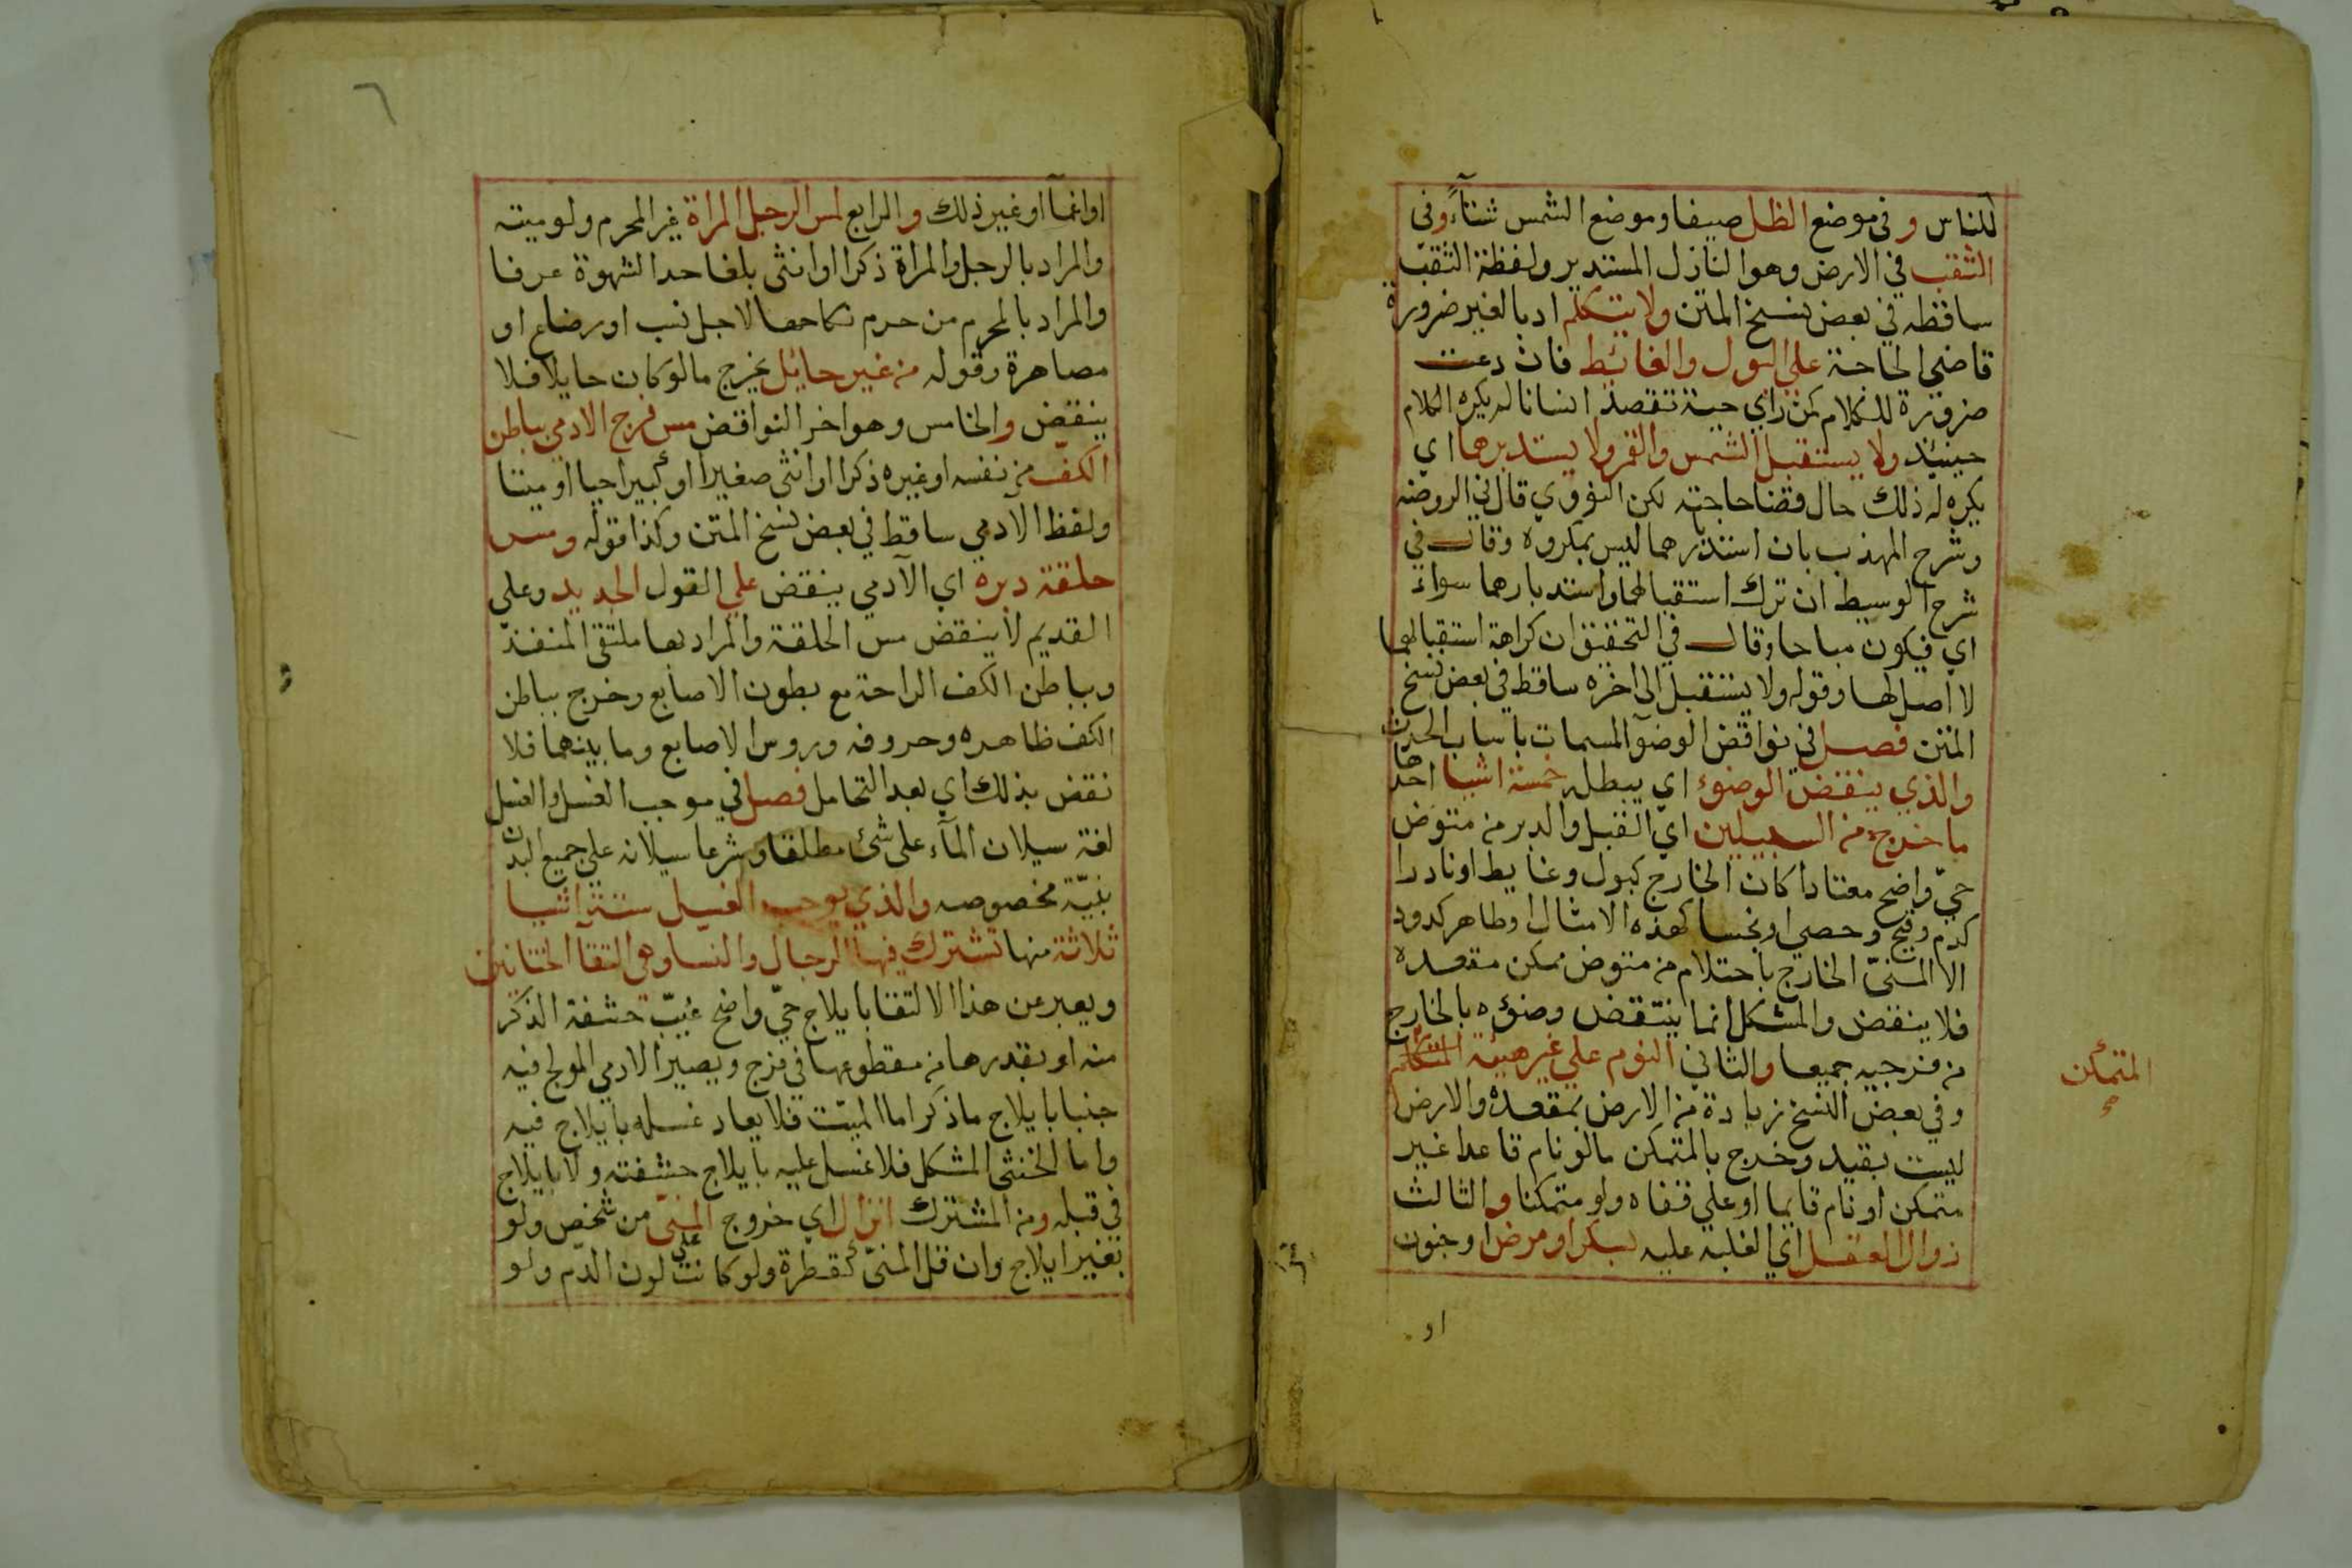 للناس و في موضع الظل صيفا وموضع الشمس شتآءً وفي
الثقب في الارض وهو النازل المستدير ولفظة الثقب
ساقطه في بعض نسخ المتن ولا يتكلم ادبا لغير ضرورة
قاضي الحاجة علي البول والغائط فان دعت
ضرورة للكلام كمن راي حية تقصد انسانا لم يكره الكلام
حينئذ ولا يستقبل الشمس والقمر ولا يستدبرهما اي
يكره له ذلك حال قضا حاجته لكن النووي قال في الروضه
وشرح المهذب بان استدبارهما ليس بمكروه وقال في
شرح الوسيط ان ترك استقبالهما واستدبارهما سواء
اي فيكون مباحا وقال في التحقيق ان كراهة استقبالهما
لا اصل لها وقوله ولا يستقبل الى اخره ساقط في بعض نسخ
المتن فصل في نواقض الوضوآ المسمات باسباب الحدث
والذي ينقض الوضوء اي يبطله خمسة اشيا احدها
ما خرج من السبيلين اي القبل والدبر من متوض
حيّ واضح معتادا كان الخارج كبول وغايط او نادرا
كدم وقيح وحصي او نجسا كهذه الامثال او طاهر كدود
الا المنيّ الخارج باحتلام من متوض ممكن مقعده
فلا ينقض والمشكل انما ينتقض وضؤه بالخارج
من فرجيه جميعا والثاني النوم علي غير هيئة
المتمكن
وفي بعض النسخ زيادة من الارض بمقعده والارض
ليست بقيد وخرج بالمتمكن مالو نام قاعدا غير
متمكن او نام قايما او علي قفاه ولو متمكنا والثالث
زوال العقل اي الغلبه عليه بسكر او مرض او جنون
او
٦
او اغمآ او غير ذلك والرابع لمس الرجل المراة غير المحرم ولو ميته
والمراد بالرجل والمراة ذكرا او انثى بلغا حدا الشهوة عرفا
والمراد بالمحرم من حرم نكاحها لاجل نسب او رضاع او
مصاهرة وقوله من غير حايل يخرج مالو كان حايلا فلا
ينقض والخامس وهو اخر النواقض مس فرج الادمي بباطن
الكف من نفسه او غيره ذكرا او انثى صغيرا او كبيرا حيا او ميتا
ولفظ الآدمي ساقط في بعض نسخ المتن وكذا قوله ومس
حلقة دبره اي الآدمي ينقض علي القول الجديد وعلي
القديم لا ينقض مس الحلقة والمراد بها ملتقى المنفذ
وبباطن الكف الراحة مع بطون الاصابع وخرج بباطن
الكف ظاهره وحروفه وروس الاصابع وما بينهما فلا
نقض بذلك اي بعد التحامل فصل في موجب الغسل والغسل
لغة سيلان المآء على شئ مطلقا وشرعا سيلانه علي جميع البدن
بنيّة مخصوصه والذي يوجب الغسل ستة اشيا
ثلاثة منها تشترك فيها الرجال والنسا وهي التقآ الختانين
ويعبر عن هذا الالتقا بايلاج حيّ واضح غيّب حشفة الذكر
منه او بقدرها من مقطوعها في فرج ويصير الادمي المولج فيه
جنبا بايلاج ما ذكر اما الميّت فلا يعاد غسله بايلاج فيه
واما الخنثى المشكل فلا غسل عليه بايلاج حشفته ولا بايلاج
في قبله ومن المشترك انزال اي خروج المنيّ من شخص ولو
بغير ايلاج وان قل المنيّ كقطرة ولو كانت على لون الدم ولو